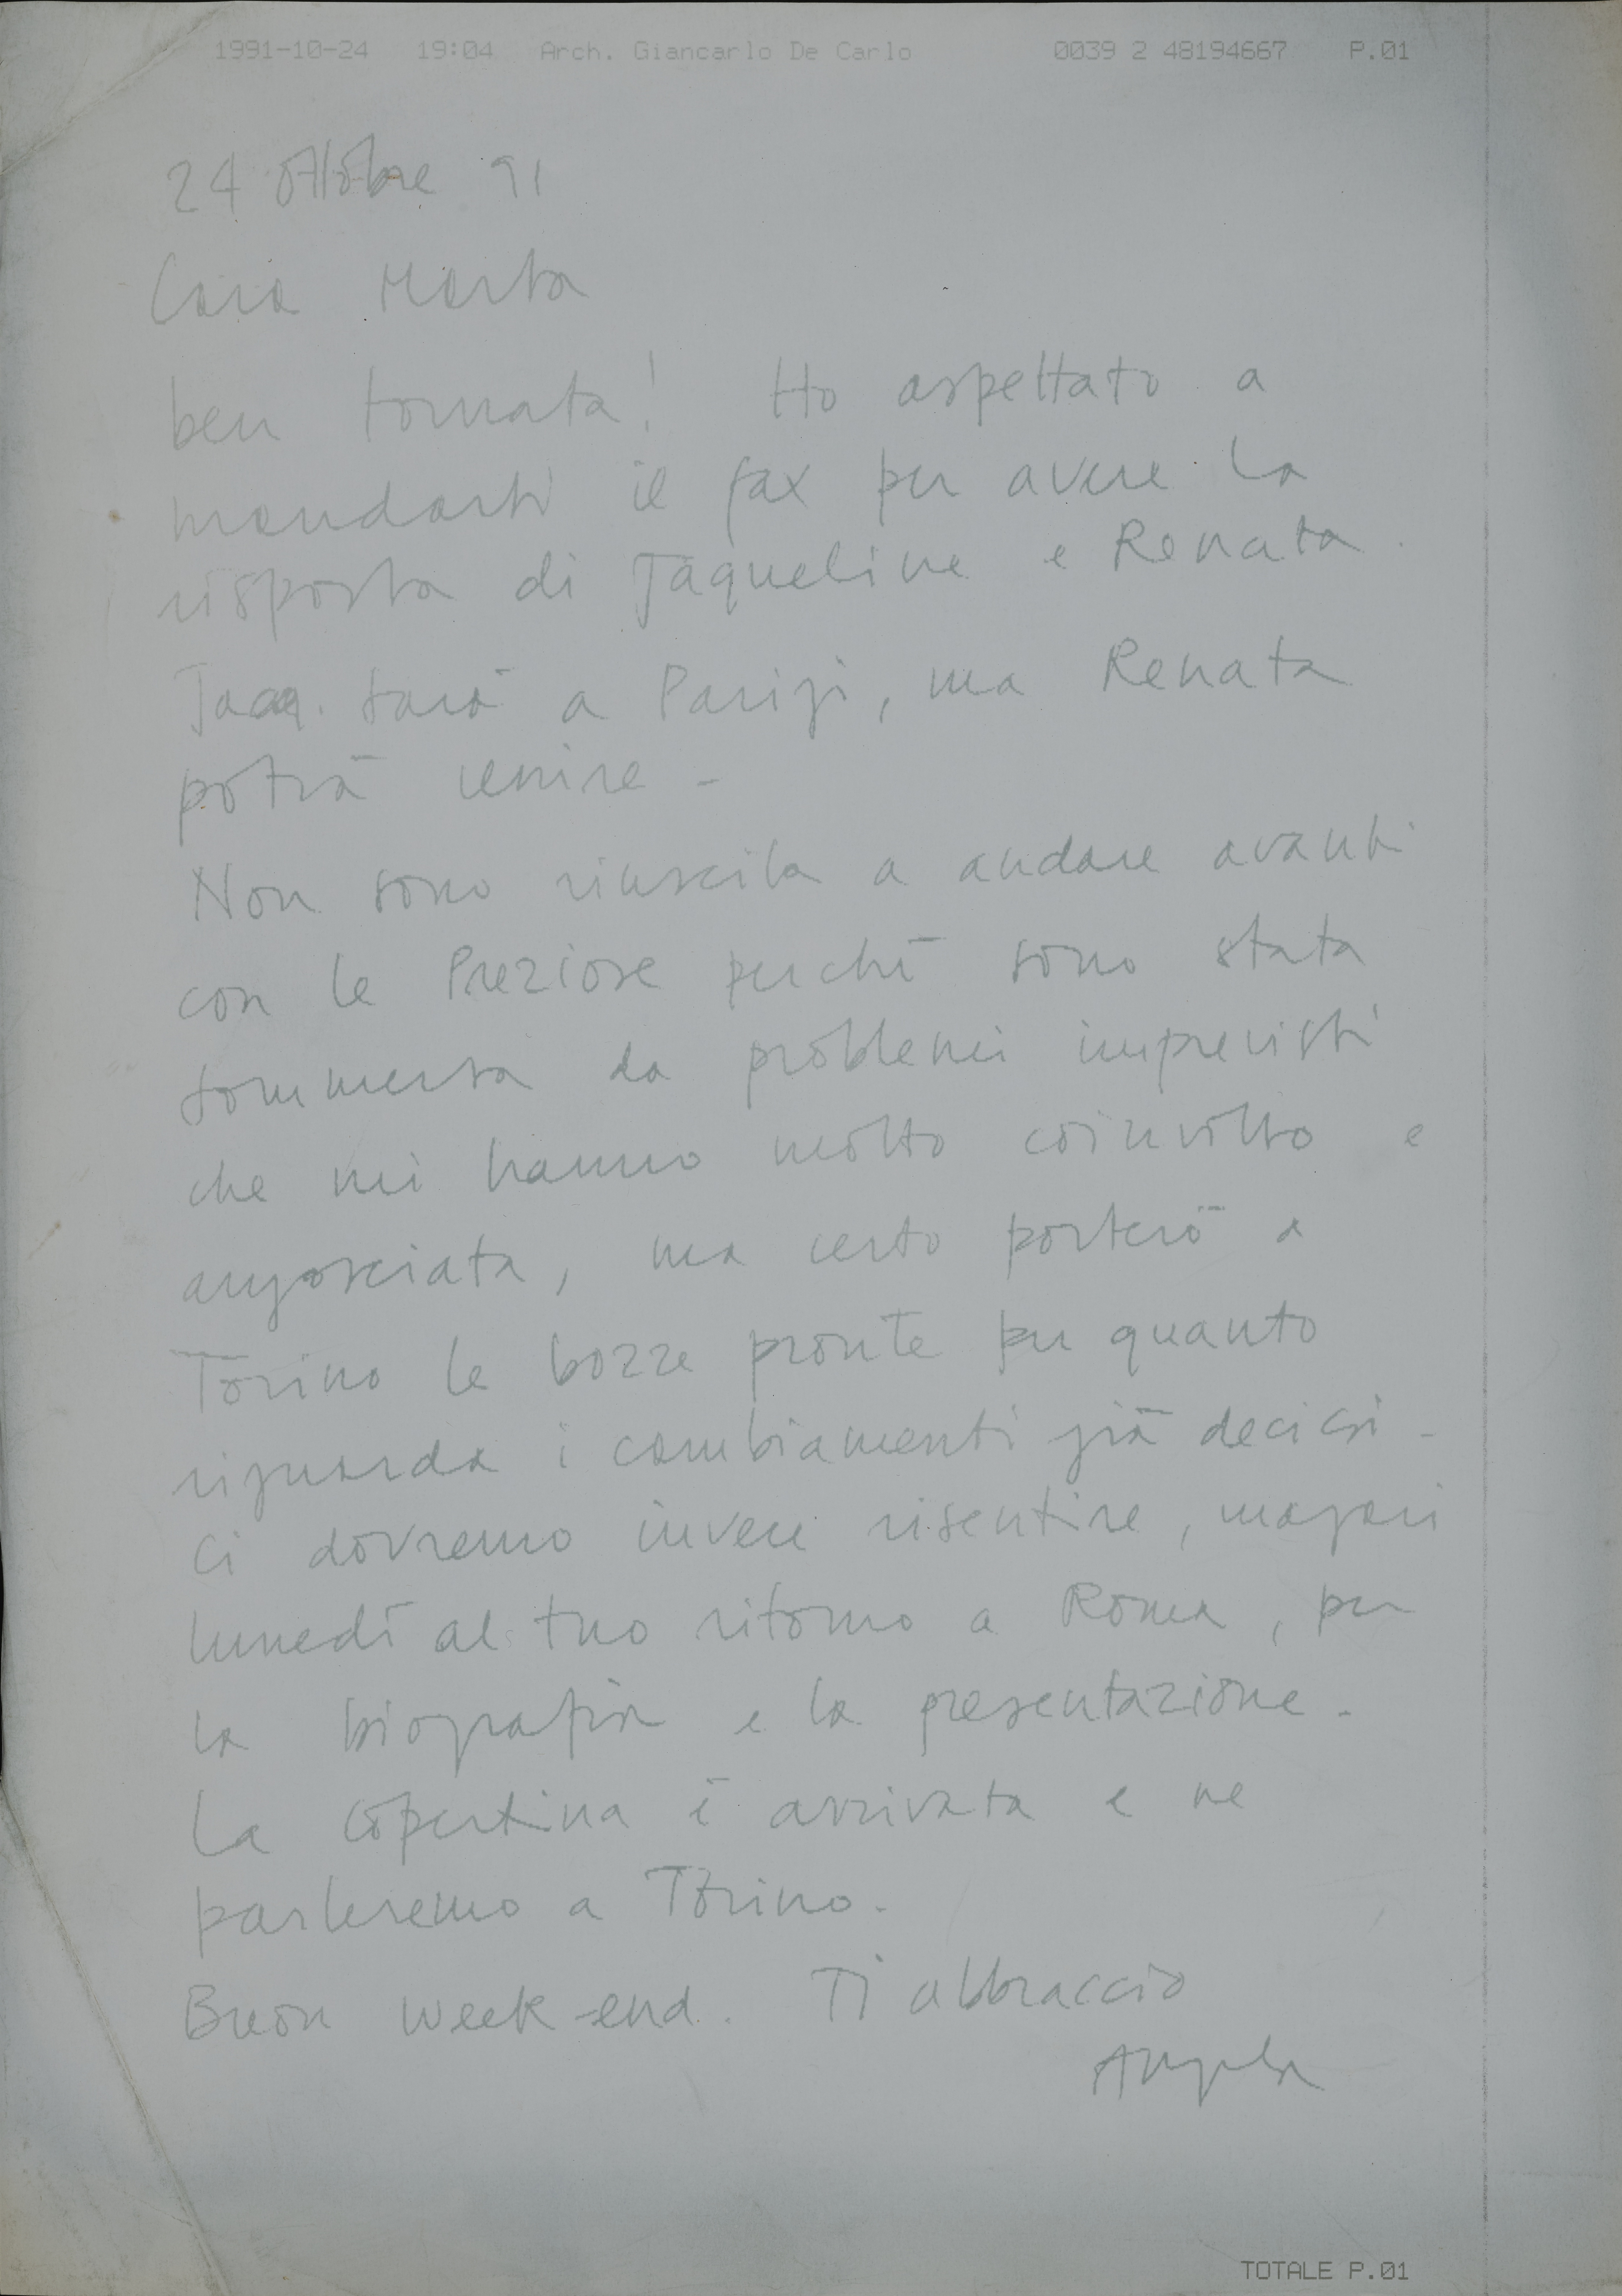 1991-10-24 19:04 Arch. Giancarlo De Carlo 0039 2 48194667 P.01
24 ottobre 91
Cara Marta
ben tornata! Ho aspettato a
mandarti il fax per avere la
risposta di Jaqueline e Renata.
Jacq. sarà a Parigi, ma Renata
potrà venire -
Non sono riuscita a andare avanti
con le Preziose perché sono stata
sommersa da problemi imprevisti
che mi hanno molto coinvolto e
angosciata, ma certo porterò a
Torino le bozze pronte per quanto
riguarda i cambiamenti già decisi -
Ci dovremo invece risentire, magari
lunedì al tuo ritorno a Roma, per
la biografia e la presentazione -
La copertina è arrivata e ne
parleremo a Torino.
Buon week-end. Ti abbraccio
Angela
TOTALE P.01